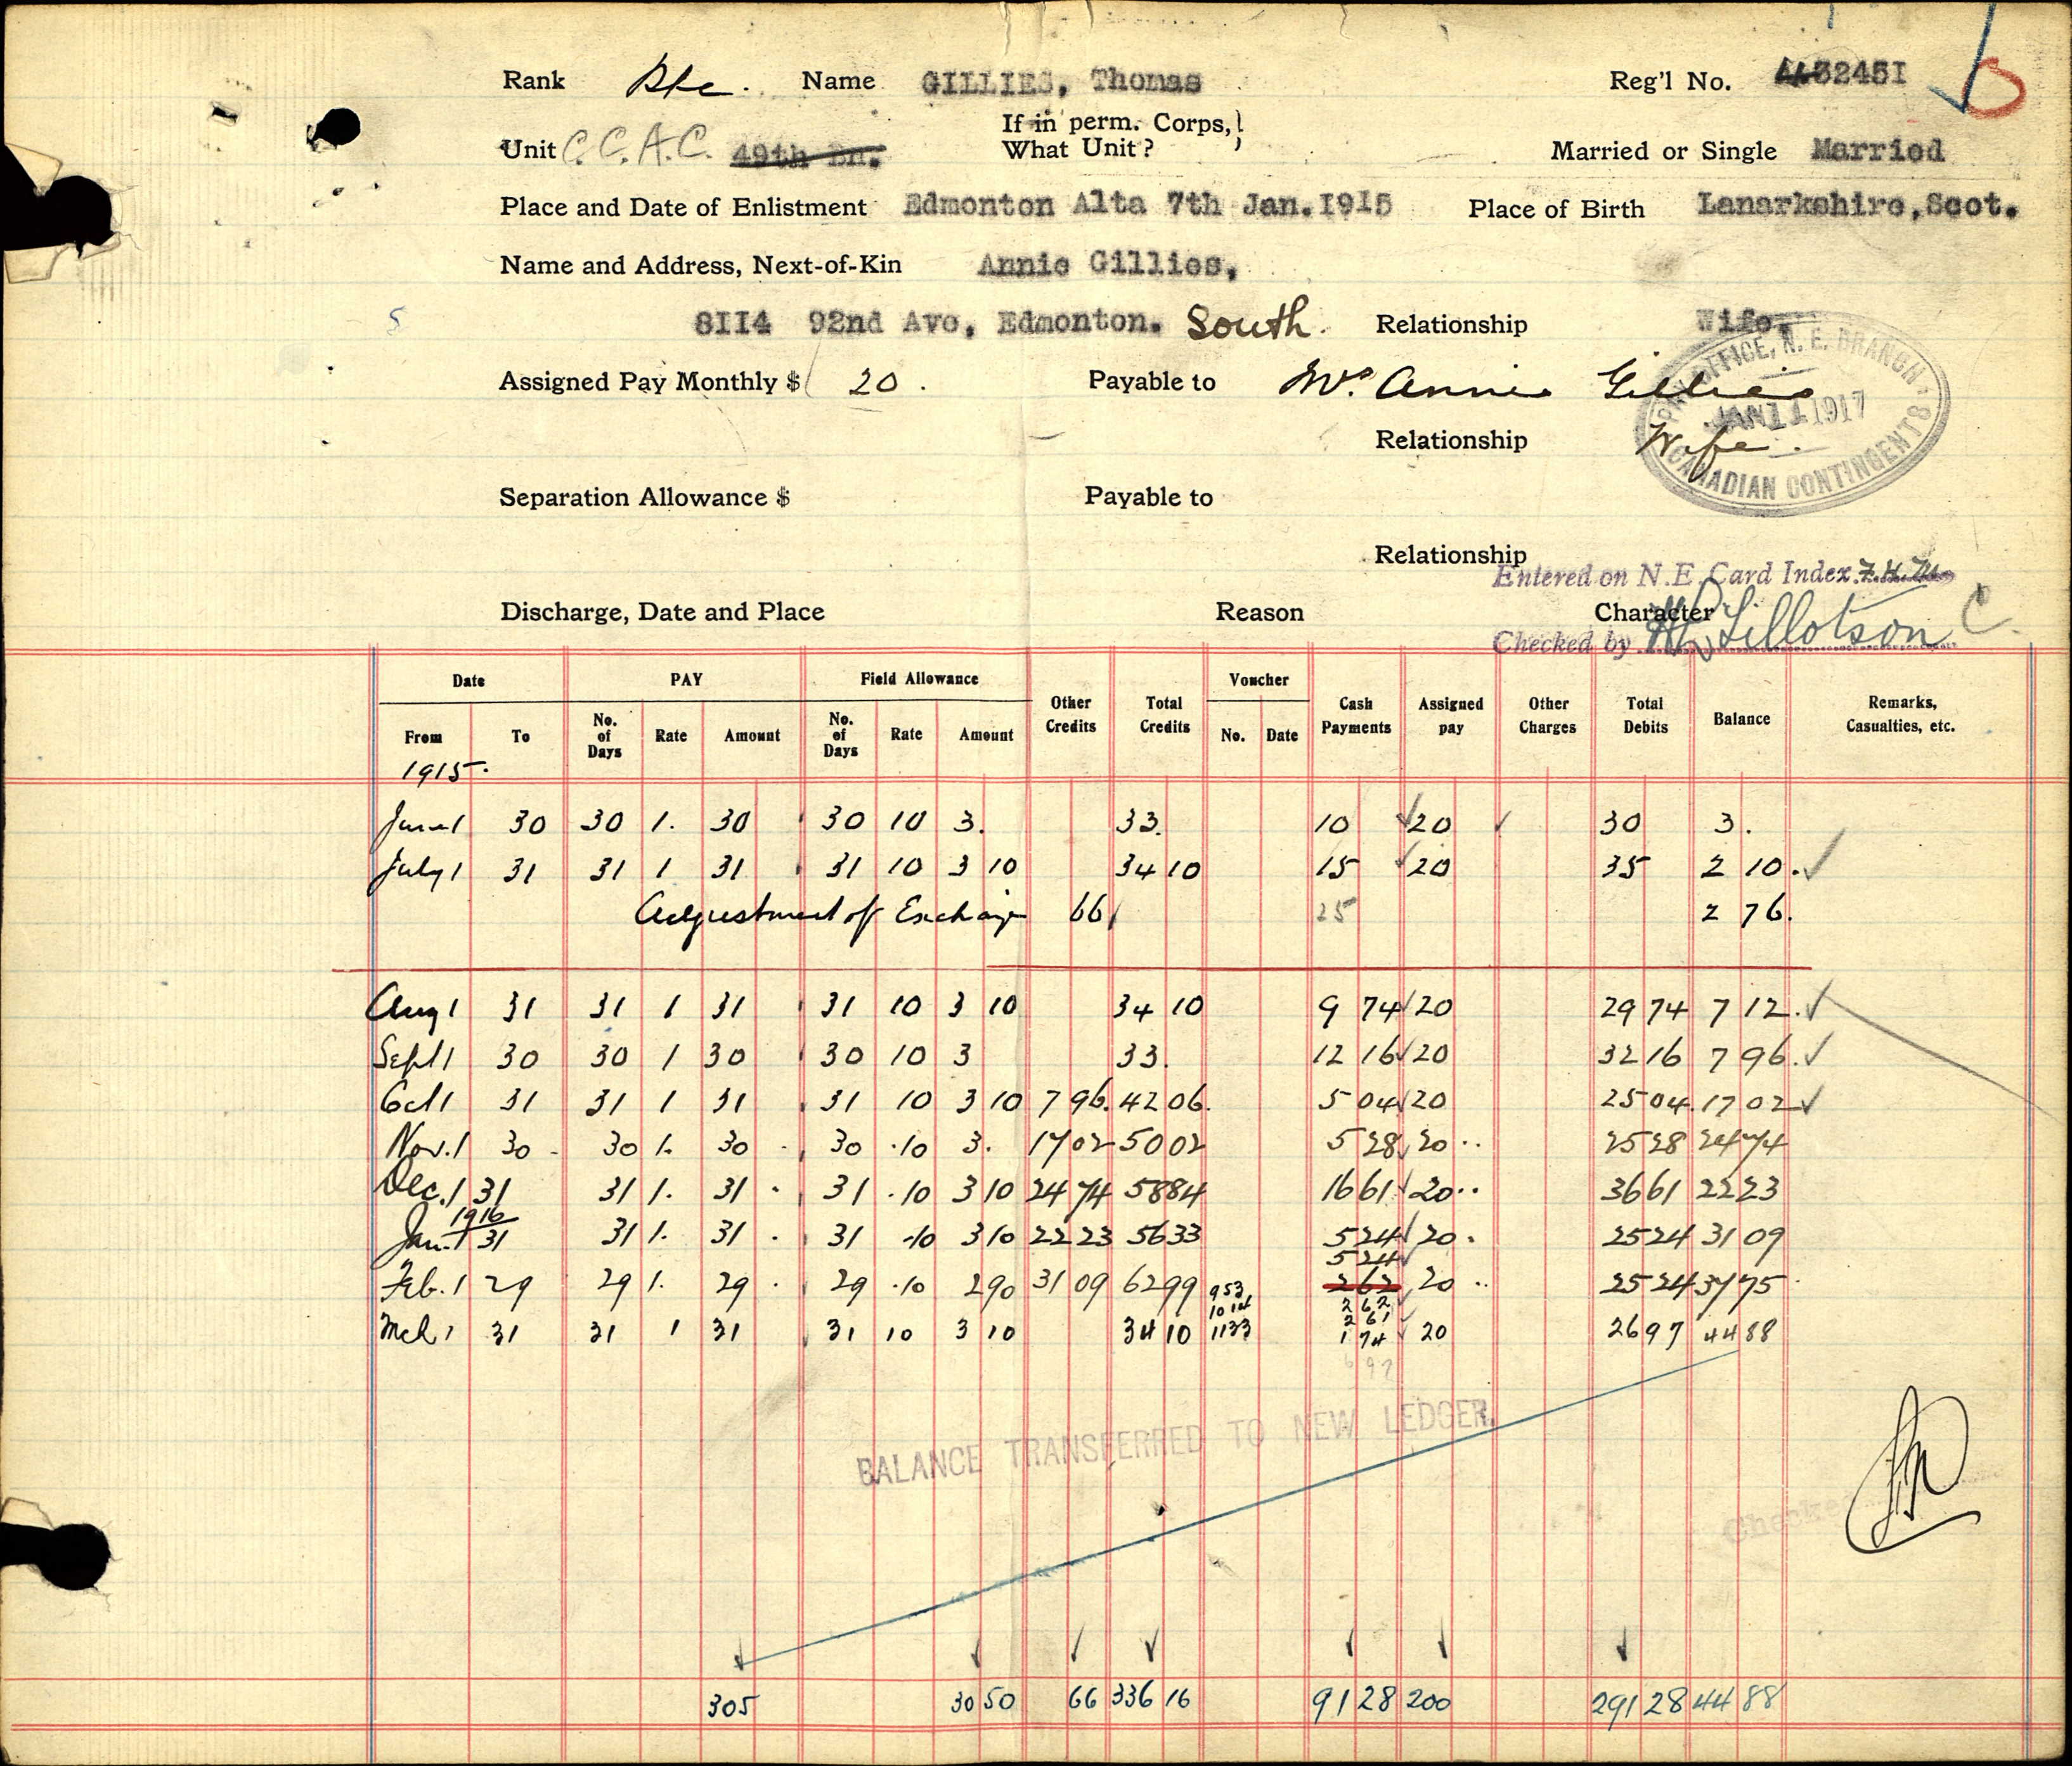 Rank Pte. Name GILLIES, Thomas Reg'l No. 432451
Unit C.C.A.C. 49th Bn. If in perm. Corps, What Unit? Married or Single Married
Place and Date of Enlistment Edmonton Alta 7th Jan. 1915 Place of Birth Lanarkshire, Scot.
Name and Address, Next-of-Kin Annie Gillies,
8114 92nd Ave, Edmonton. South. Relationship Wife.
Assigned Pay Monthly $ 20. Payable to Mrs. Annie Gillies
PAY OFFICE, N. E. BRANCH JAN 11 1917 CANADIAN CONTINGENTS
Relationship Wife.
Separation Allowance $ Payable to
Relationship
Entered on N.E. Card Index
Discharge, Date and Place Reason Character
Checked by Tillotson C.
Date PAY Field Allowance Other Credits Total Credits Voucher Cash Payments Assigned pay Other Charges Total Debits Balance Remarks, Casualties, etc.
From To No. of Days Rate Amount No. of Days Rate Amount No. Date
1915.
June 1 30 30 1. 30 30 10 3. 33. 10 20 30 3.
July 1 31 31 1 31 31 10 3 10 34 10 15 20 35 2 10.
Adjustment of Exchange 66 25 2 76.
Aug 1 31 31 1 31 31 10 3 10 34 10 9 74 20 29 74 7 12.
Sept 1 30 30 1 30 30 10 3 33. 12 16 20 32 16 7 96.
Oct 1 31 31 1 31 31 10 3 10 7 96. 42 06. 5 04 20 25 04. 17 02
Nov. 1 30 30 1. 30 30 .10 3. 17 02 50 02 5 28 20 25 28 24 74
Dec. 1 31 31 1. 31 31 .10 3 10 24 74 58 84 16 61 20 36 61 22 23
1916
Jan. 1 31 31 1. 31 31 .10 3 10 22 23 56 33 5 24 20 25 24 31 09
5 24
Feb. 1 29 29 1. 29 29 .10 2 90 31 09 62 99 2 62 20 25 24 37 75
953 2 62
1014 2 61
Mch 1 31 31 1 31 31 10 3 10 34 10 1133 1 74 20 26 97 44 88
6 97
BALANCE TRANSFERRED TO NEW LEDGER.
Checked
305 30 50 66 336 16 91 28 200 291 28 44 88